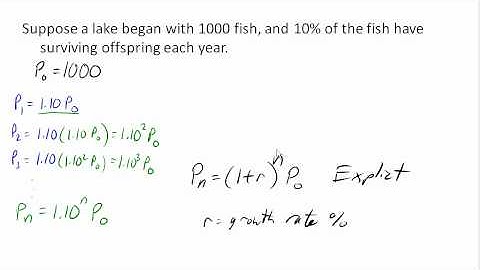 Suppose a lake began with 1000 fish, and 10% of the fish have
surviving offspring each year.
P₀ = 1000
P₁ = 1.10 P₀
P₂ = 1.10 (1.10 P₀) = 1.10² P₀
P₃ = 1.10 (1.10² P₀) = 1.10³ P₀
⋮
Pₙ = 1.10ⁿ P₀
Pₙ = (1+r)ⁿ P₀ Explict
r = growth rate %